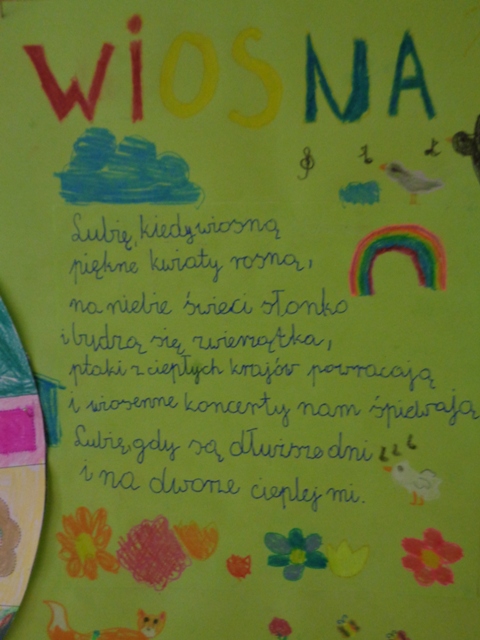 WIOSNA
Lubię, kiedy wiosną
piękne kwiaty rosną,
na niebie świeci słonko
i budzą się zwierzątka,
ptaki z ciepłych krajów powracają
i wiosenne koncerty nam śpiewają
Lubię, gdy są dłuższe dni
i na dworze cieplej mi.